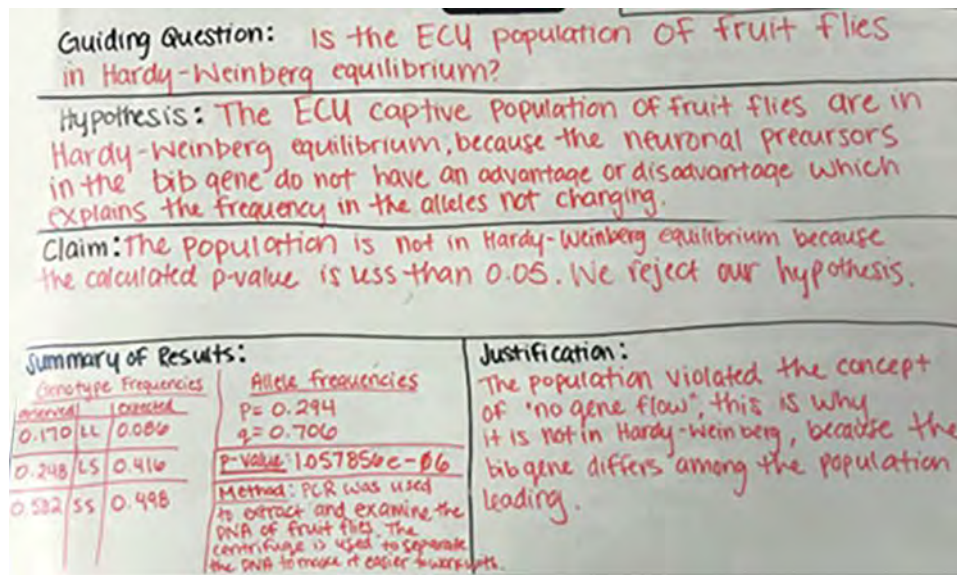 Guiding Question: Is the ECU population of fruit flies
in Hardy-Weinberg equilibrium?
Hypothesis: The ECU captive population of fruit flies are in
Hardy-Weinberg equilibrium, because the neuronal precursors
in the bib gene do not have an advantage or disadvantage which
explains the frequency in the alleles not changing.
Claim: The population is not in Hardy-Weinberg equilibrium because
the calculated p-value is less than 0.05. We reject our hypothesis.
Summary of Results:
Genotype Frequencies
observed expected
0.170 LL 0.086
0.248 LS 0.416
0.582 SS 0.498
Allele frequencies
P= 0.294
q= 0.706
P-value: 1.057856e-06
Method: PCR was used
to extract and examine the
DNA of fruit flies. The
centrifuge is used to separate
the DNA to make it easier to work
Justification:
The population violated the concept
of "no gene flow", this is why
it is not in Hardy-Weinberg, because the
bib gene differs among the population
leading.